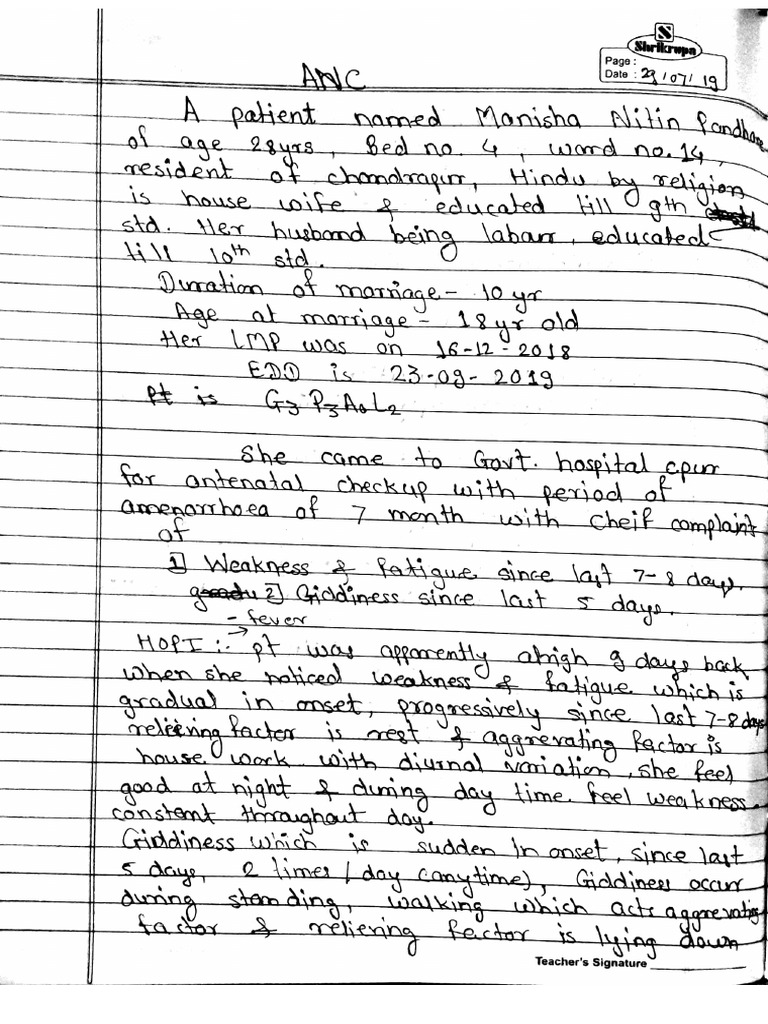 N
Shrikrupa
Page :
Date : 29/07/19
ANC
A patient named Manisha Nitin Pandhare
of age 28yrs, Bed no. 4, ward no. 14,
resident of chandrapur, Hindu by religion
is house wife & educated till 9th
std. Her husband being labarr, educated
till 10th std.
Duration of marriage - 10 yr
Age at marriage - 18 yr old
Her LMP was on 16-12-2018
EDD is 23-09-2019
Pt is G3 P3 A0 L2
She came to Govt. hospital cpur
for antenatal checkup with period of
amenorrhoea of 7 month with cheif complaint
of
1] Weakness & fatigue since last 7-8 days.
2] Giddiness since last 5 days.
- fever
HOPI :- → pt was apparently alrigh 9 days back
when she noticed weakness & fatigue which is
gradual in onset, progressively since last 7-8 days
relieering factor is rest & aggrevating factor is
house work with diurnal variation, she feel
good at night & during day time. feel weakness.
constent throughout day.
Giddiness which is sudden in onset, since last
5 days, 2 times / day (anytime), Giddiness occur
during standing, walking which acts aggrevating
factor & reliering factor is lying down
Teacher's Signature